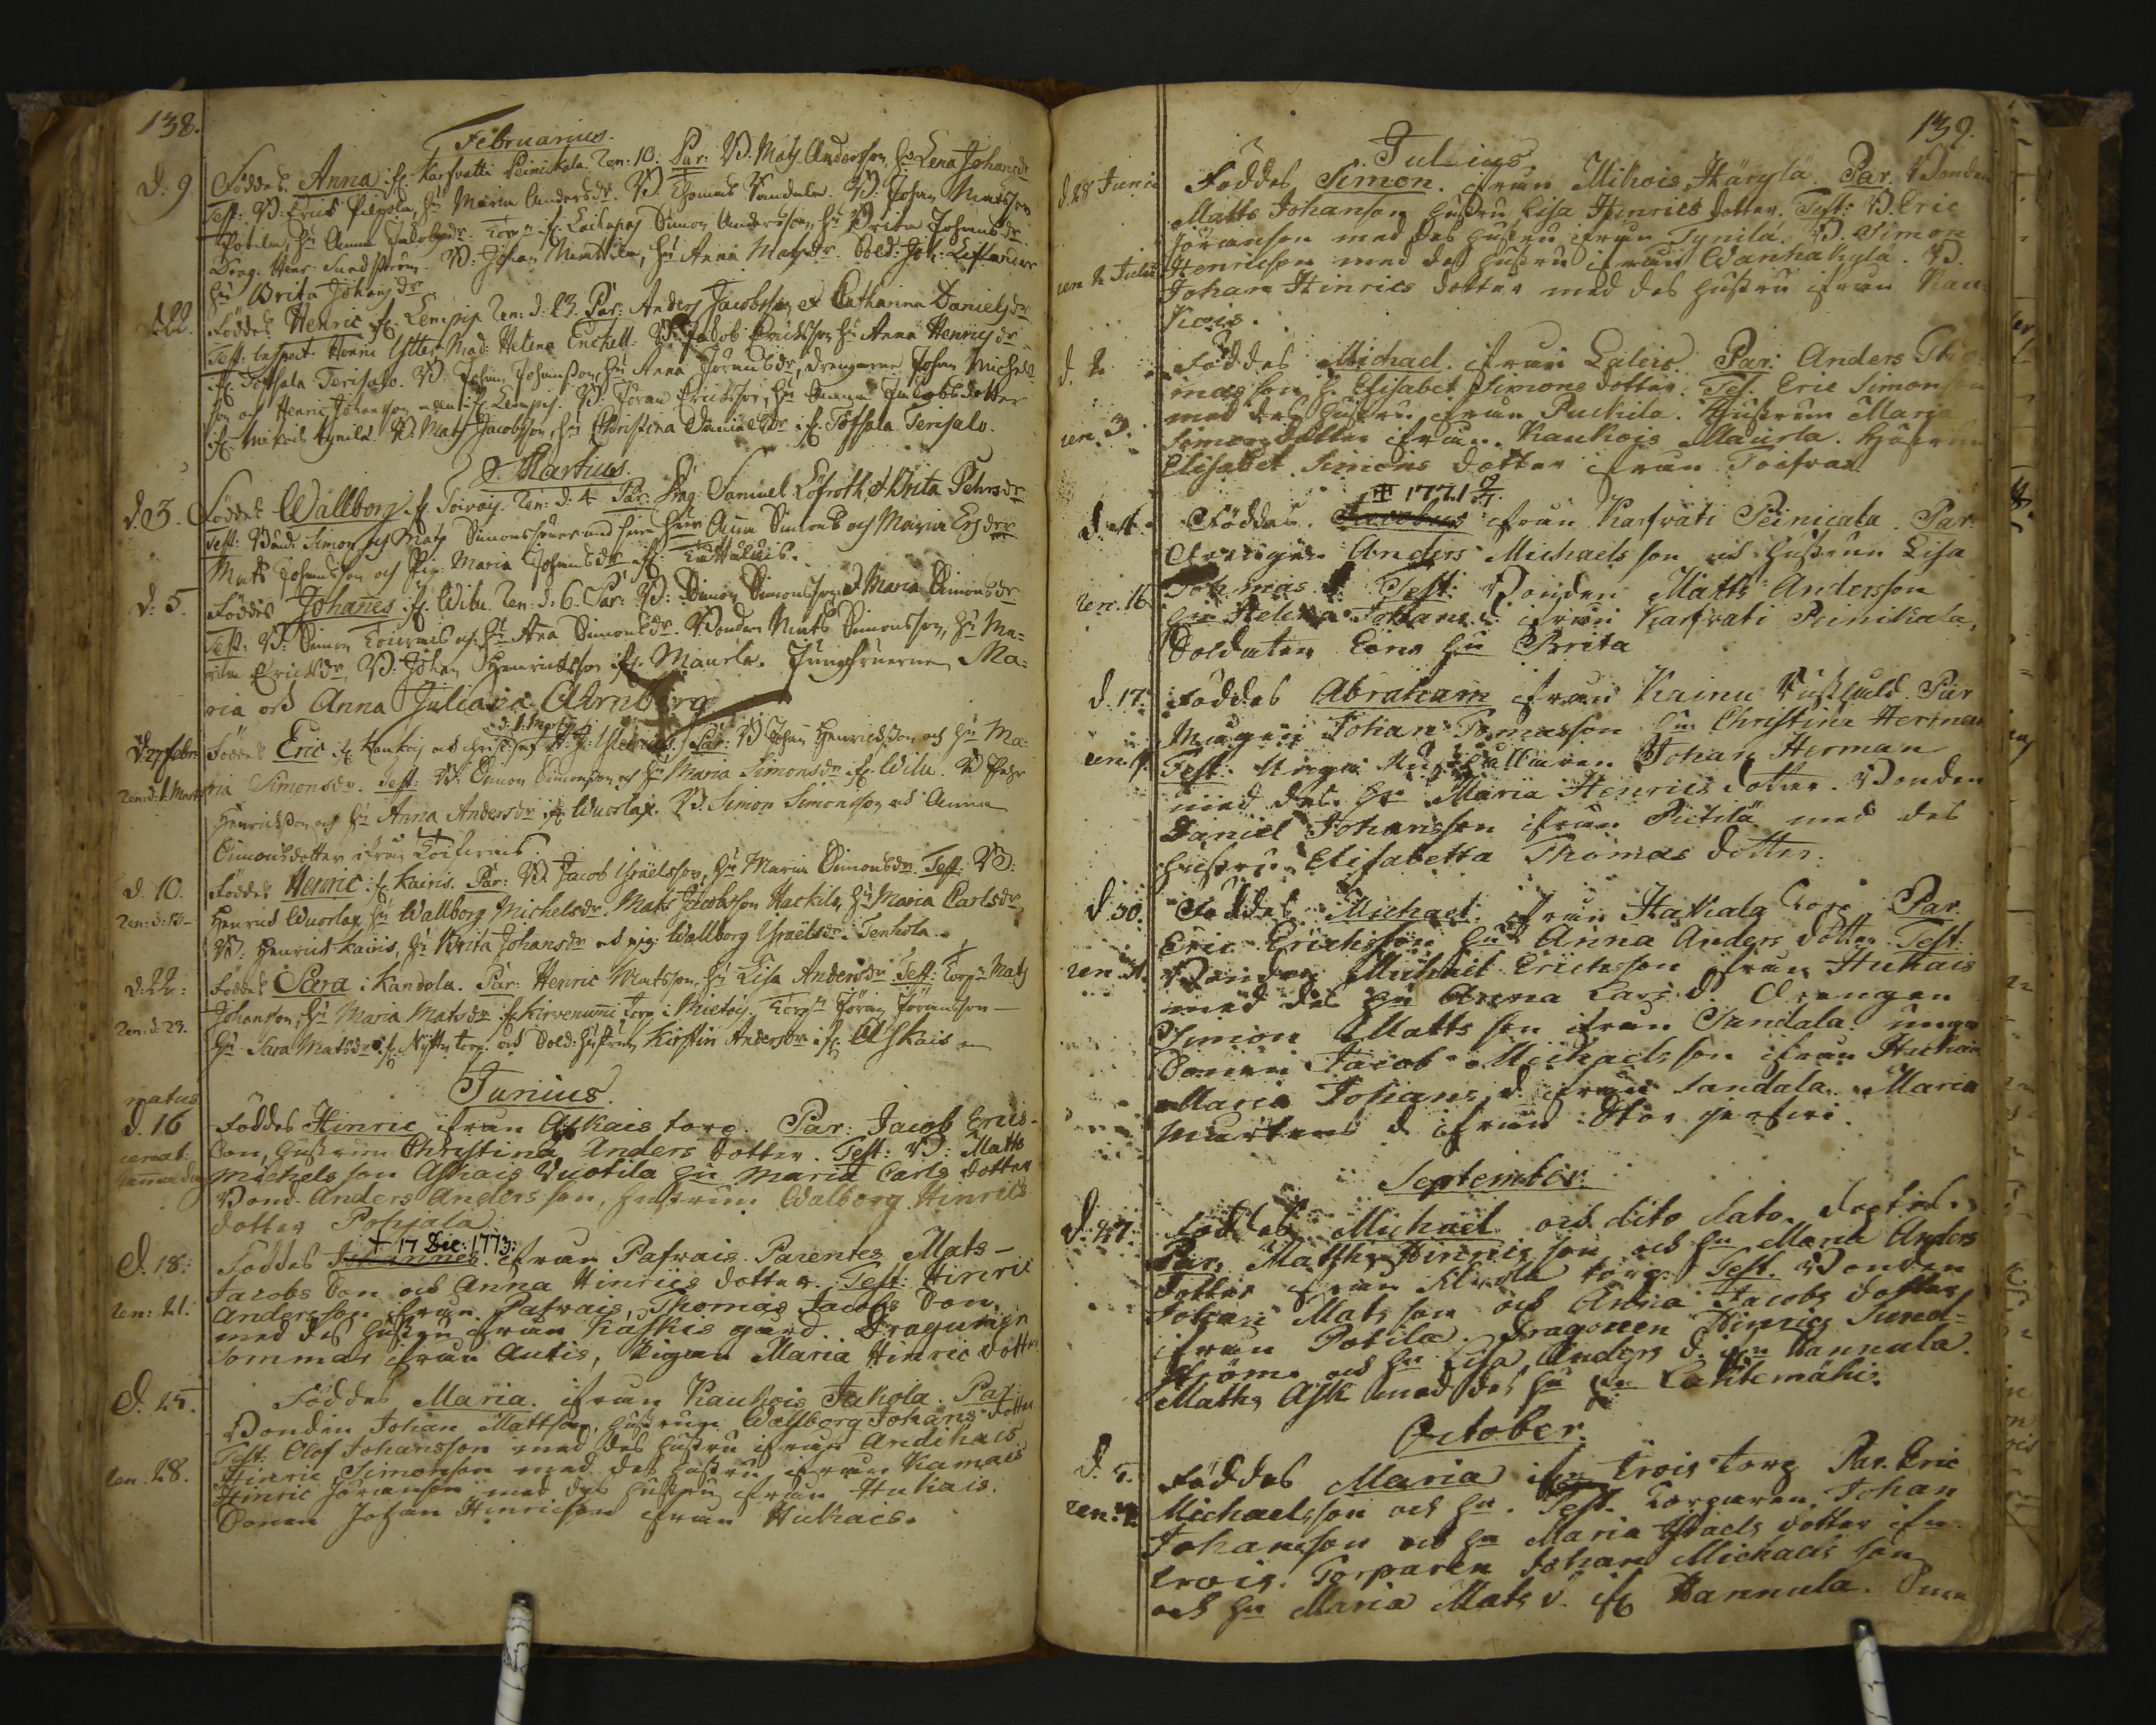 138.
Februarius.
d. 9. Föddes Anna if. Karfvatti Peinikala. Ren: 10: Par: B. Mats Andersson, hu Lena Johansdr
Test: B. Eric Pilpola, hu Maria Andersdr. B. Thomas Sandala. B. Johan Matsson
Potila, hu Anna Jacobsdr. Torp. if. Laikapas Simon Andersson, hu Brita Johansdr.
Drag. Henr. Sundström. B: Johan hu Anna Matsdr. Sold: Joh: Liflander
hu Brita Johansdr
d. 22. Föddes Henric if. Lempis. Ren: d: 23. Par: Anders Jacobsson et Catharina Danielsdr
Test: Inspect. Henric Mad. Helena Enckell. B. Jacob Ericksson hu Anna Henricsdr
if. Toffsala Terisalo. B. Johan Johansson, hu Anna Göransdr, drengarne Johan Michels
son och Henric Johansson if. Lempis. B. Göran Ericksson, hu Anna Jacobsdotter
if. Mikois Tynilä. B. Mats Jacobsson, hu Christina Danielsdr if. Töffsala Terisalo.
Martius.
d. 3. Föddes Wallborg if. Toivois. Ren: d. 4 Par: Drag: Samuel Löfroth et Brita Pehrsdr
Test: Bönd: Simon och Mats Simonssöner med sine hrur Anna Simons och Maria Ersdr
Mats Johansson och Pig. Maria Johansdr if.
d. 5. Föddes Johannes if. Wilu. Ren: d: 6. Par: B: Simon Simonsson et Maria Simonsdr
Test: B: Simon Toivois och hu Ana Simonsdr. Bonden Mats Simonsson, hu Ma=
ria Ericsdr, B. Johan Henricksson if. Maurla. Jungfruerne Ma=
ria och Anna Juliana Arnberg
d. 1. Marty
d. 27 febr. Föddes Eric if. Kankois och christ: Par: B Johan Henricksson och hu Ma=
Ren: d: 1. Marti ria Simonsdr. Test: B: Simon Simonsson och hu Maria Simonsdr if. Wilu. B Pehr
Henricksson och hu Anna Andersdr if. Wuorlax. B. Simon Simonsson och Anna
Simonsdotter ifrån
d. 10. Föddes Henric: if. Kairis. Par: B. Jacob Israelsson, hu Maria Simonsdr. Test: B:
Ren: d: 13- Henric Wuorlax hu Wallborg Michelsdr. Mats Jacobsson Hackila, hu Maria Carlsdr
B: Henric Kairis, hu Brita Johansdr och pig: Wallborg Israelsdr. Tenhola.
d. 22: Föddes Sara i Kandola. Par: Henric Mattsson, hu Lisa Andersdr Test: Torp: Mats
Johansson, hu Maria Matsdr if. Kirvenumi torp i Mietois. Torp: Jöran Jöransson -
Ren: d: 23. hu Sara Matsdr if. torp. och Sold: hustrun Kirstin Andersdr if. Askais
Junius.
natus d. 16 Föddes Hinric ifrån Askais torp. Par: Jacob Erics-
renat: Son, hustrun Christina Anders dotter. Test: B: Matts
Michelsson Askais Vuotila hu Maria Carls dotter
Bond. Anders Andersson, hustrun Walborg Hinrics
dotter Pohjala
+ 17 Dec: 1773:
d. 18: Föddes Johannes. ifrån Pafrais. Parentes Mats-
Jacobs Son och Anna Hinrics dotter. Test: Hinric
ren: 21. Andersson ifrån Pafrais, Thomas Jacobs Son
med des hustru ifrån Kaskis gård. Dragunen
Sommar ifrån Autis, Pigan Maria Hinric dotter
d. 25. Föddes Maria. ifrån Kaukois Jakola. Par
Bonden Johan Mattsson, hustrun Wallborg Johans dotter
Test: Olof Johansson med des hustru ifrån Andikais
ren: 28. Hinric Simonson med des hustru ifrån Kamais
Hinric Göranson med des hustru ifrån Hukais.
Sonen Johan Hinricson ifrån Hukais.
139.
Julius
d. 28 Junii Föddes Simon. ifrån Mikois Häryla. Par. Bonden
Matts Johanson hustru Lisa Hinrics dotter. Test: B. Eric
Jöranson med des hustru ifrån Tynilä. B. Simon
ren 2 Julii Henricson med des hustru ifrån Wanhakylä. B.
Johan Hinrics dotter med des hustru ifrån Kau
Kois.
d. 2 Föddes Michael. ifrån Laleis. Par: Anders Tho
masson, h. Elisabet Simons dotter. Tes: Eric Simonson
ren. 3. med des hustru ifrån Puckila. Hustrun Maria
Simons dotter ifrån Kaukois Maurla. Hustrun
Elisabet Simons dotter ifrån Toifvais.
+ 1771
d. 4. Föddes. Jacobus ifrån Karfvati Peinicala. Par.
Drengen Anders Michaelsson och hustrun Lisa
ren. 16. Tohmas d. Test: Bonden Matts Andersson
hu Helena Johans d. ifrån Karfvati Peinikala,
Soldaten Eöns hu Brita
d. 17. Föddes Abraham ifrån Kainu Par
Johan Tomasson hu Christina Herman
Test: Unga Johan Herman
med des hu Maria Henrics dotter. Bonden
Daniel Johansson ifrån Pietilä med des
hustru Elisabetta Thomas dotter.
d. 30. Föddes Michael. ifrån Hakiala torp Par.
Eric Erichsson hu Anna Anders dotter. Test:
ren. 31. Bonden Michael Ericksson ifrån Hukais
med des hu Anna Lars d. Drengen
Simon Matts son ifrån Sandala. unga
Sonen Jacob Michaelsson ifrån Hukais
Maria Johans d. ifrån Sandala. Maria
Martens d. ifrån Stor
September.
d. 27. Föddes Michael och dito dato döptes.
Par. Matths Hinricsson och hu Maria Anders
dotter ifrån torp. Test. Bonden
Johan Matsson och Anna Jacobs dotter
ifrån Potila. Dragonen Hinrics Sund=
ström och hu Lisa Anders d. ifn Hannula.
Maths Ask med des hu ifn Lahtemäki.
October.
d. 5. Föddes Maria ifn Krois torp Par. Eric
ren. Michaelsson och hu. Test. Torparen Johan
Johansson och hu Maria Israels dotter ifn
Krois. Torparen Johan Michaelsson
och hu Maria Mats d. if Hannula.